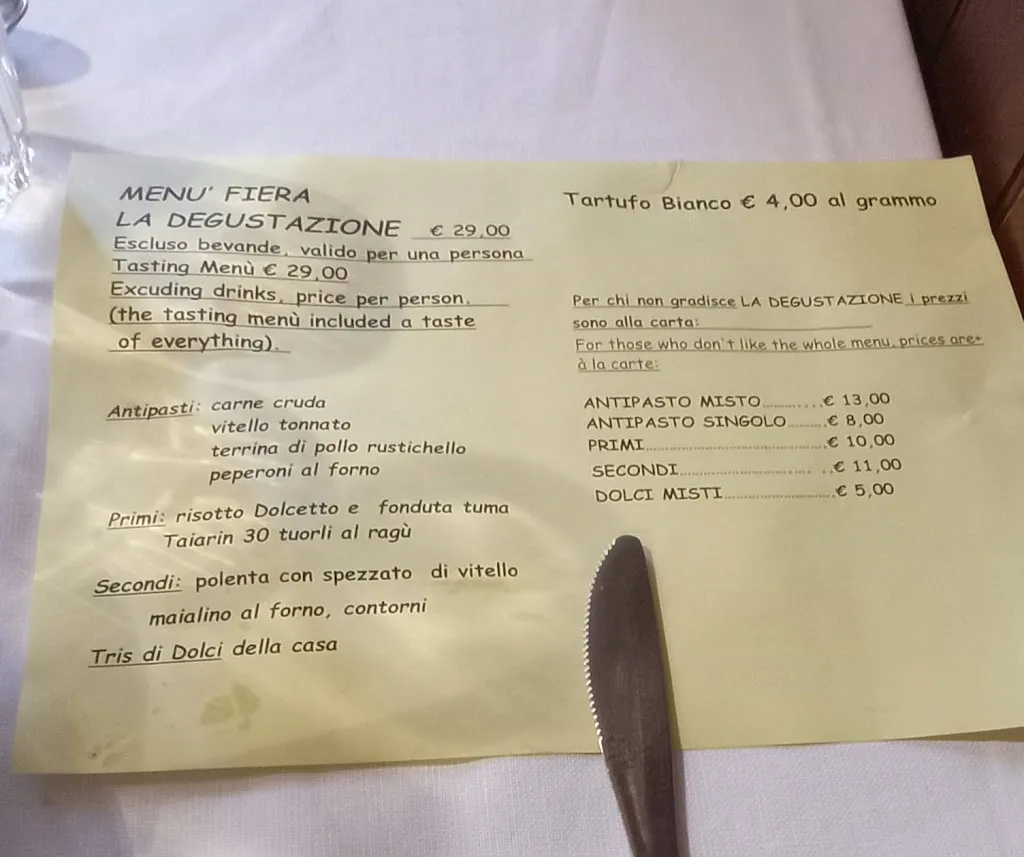 MENU' FIERA
LA DEGUSTAZIONE € 29,00
Escluso bevande, valido per una persona
Tasting Menù € 29,00
Excuding drinks, price per person.
(the tasting menù included a taste
of everything).
Antipasti: carne cruda
vitello tonnato
terrina di pollo rustichello
peperoni al forno
Primi: risotto Dolcetto e fonduta tuma
Taiarin 30 tuorli al ragù
Secondi: polenta con spezzato di vitello
maialino al forno, contorni
Tris di Dolci della casa
Tartufo Bianco € 4,00 al grammo
Per chi non gradisce LA DEGUSTAZIONE i prezzi
sono alla carta:
For those who don't like the whole menu, prices are+
à la carte:
ANTIPASTO MISTO............€ 13,00
ANTIPASTO SINGOLO.........€ 8,00
PRIMI..........................................€ 10,00
SECONDI.............................. ..€ 11,00
DOLCI MISTI..........................€ 5,00